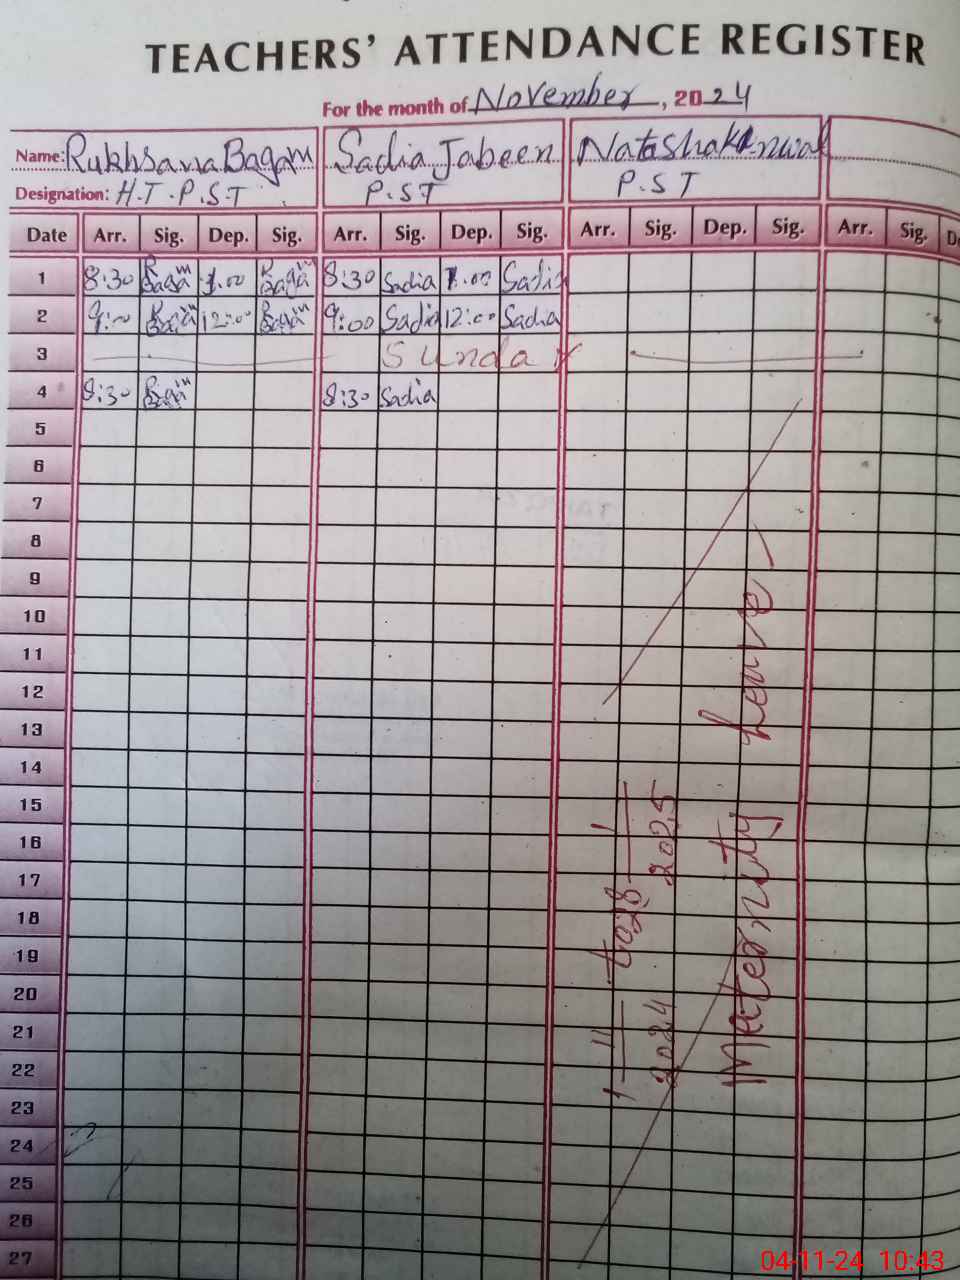 TEACHERS' ATTENDANCE REGISTER
For the month of November, 2024
Name: Rukhsana Bagam Sadia Jabeen Natasha Kanwal
Designation: H.T.P.S.T P.S.T P.S.T
Date Arr. Sig. Dep. Sig. Arr. Sig. Dep. Sig. Arr. Sig. Dep. Sig. Arr. Sig. De
1 8:30 R Bagam 1.00 R Bagam 8:30 Sadia 1.00 Sadia
2 9:00 R Bagam 12:00 R Bagam 9:00 Sadia 12:00 Sadia
3 Sunday
4 8:30 R Bagam 8:30 Sadia
5
6
7
8
9
10
11
12
13
14
15
16
17
18
19
20
21
22
23
24
25
26
27
1-11-2024 to 28-1-2025
Maternity Leave
04-11-24 10:43